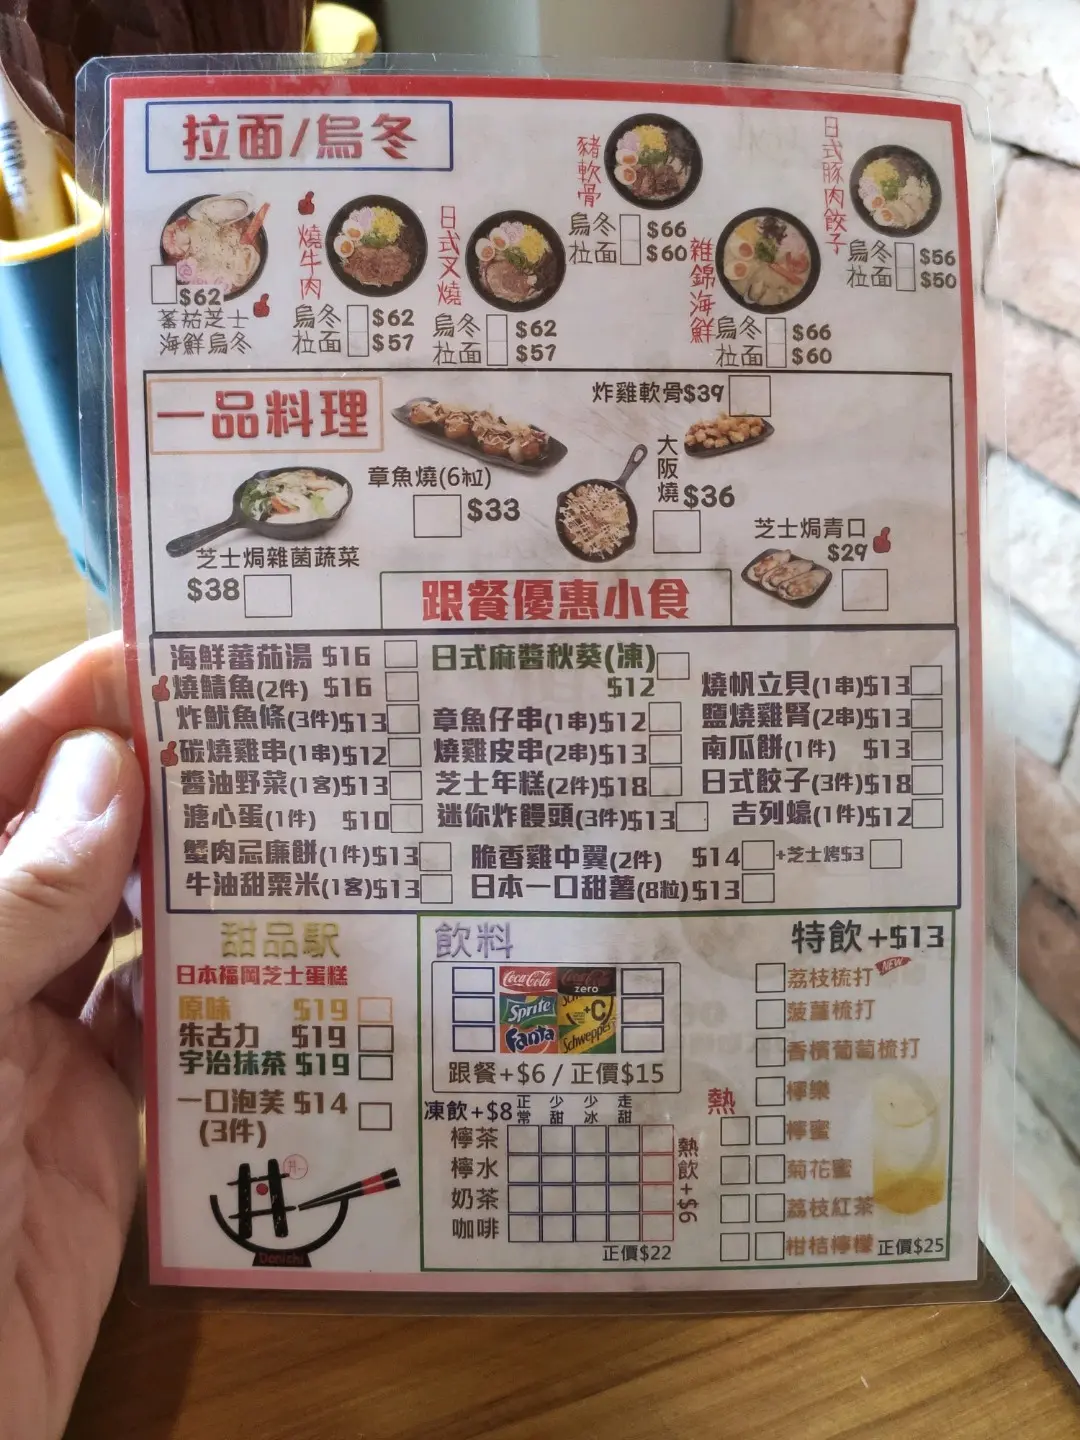 拉面/烏冬
$62
蕃茄芝士
海鮮烏冬
燒牛肉
烏冬 $62
拉面 $57
日式叉燒
烏冬 $62
拉面 $57
豬軟骨
烏冬 $66
拉面 $60
雜錦海鮮
烏冬 $66
拉面 $60
日式豚肉餃子
烏冬 $56
拉面 $50
一品料理
章魚燒(6粒)
$33
炸雞軟骨$39
大阪燒 $36
芝士焗雜菌蔬菜
$38
芝士焗青口
$29
跟餐優惠小食
海鮮蕃茄湯 $16
燒鯖魚(2件) $16
炸魷魚條(3件)$13
碳燒雞串(1串)$12
醬油野菜(1客)$13
溏心蛋(1件) $10
蟹肉忌廉餅(1件)$13
牛油甜粟米(1客)$13
日式麻醬秋葵(凍)
$12
章魚仔串(1串)$12
燒雞皮串(2串)$13
芝士年糕(2件)$18
迷你炸饅頭(3件)$13
脆香雞中翼(2件) $14 +芝士烤$3
日本一口甜薯(8粒)$13
燒帆立貝(1串)$13
鹽燒雞腎(2串)$13
南瓜餅(1件) $13
日式餃子(3件)$18
吉列蠔(1件)$12
甜品駅
日本福岡芝士蛋糕
原味 $19
朱古力 $19
宇治抹茶 $19
一口泡芙 $14
(3件)
丼一
Donichi
飲料
Coca-Cola
Coca-Cola zero
Sprite
Schweppes +C
Fanta
跟餐+$6 / 正價$15
凍飲+$8 正常 少甜 少冰 走甜
檸茶
檸水
奶茶
咖啡
熱飲+$6
正價$22
特飲+$13
荔枝梳打 NEW
菠蘿梳打
香檳葡萄梳打
熱
檸樂
檸蜜
菊花蜜
荔枝紅茶
柑桔檸檬 正價$25